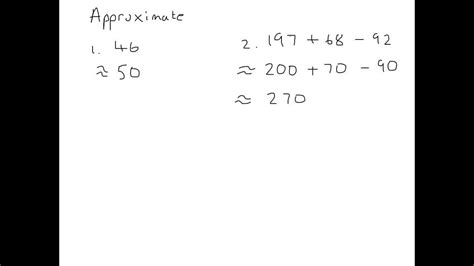 Approximate
1. 46
≈ 50
2. 197 + 68 - 92
≈ 200 + 70 - 90
≈ 270